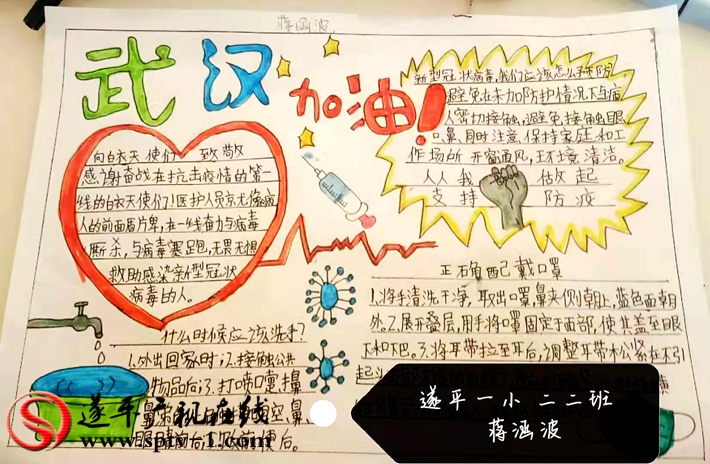 蒋涵波
武汉
加油!
向白衣天使们 致敬
感谢奋战在抗击疫情的第一
线的白衣天使们!医护人员
人的前面
厮杀,与病毒赛跑,无畏无惧
救助感染新型冠状
病毒的人。
新型冠状病毒,我们应该怎么预防
避免在未加防护情况下与病
人密切接触,避免接触眼
口鼻,同时注意,保持家庭和工
作场所 开窗通风,环境清洁。
人人我 做起
支持 防疫
什么时候应该洗手?
1.外出回家时;2.接触公共
物品后;3.打喷嚏,擤
正确配戴口罩
1.将手清洗干净,取出口罩,鼻夹侧朝上,蓝色面朝
外.2.展开叠层,用手将口罩固定于面部,使其盖至眼
下和下巴。3.将耳带拉至耳后,调整耳带松紧在不引
遂平广视在线
www.sptv-1.com
遂平一小 二二班
蒋涵波